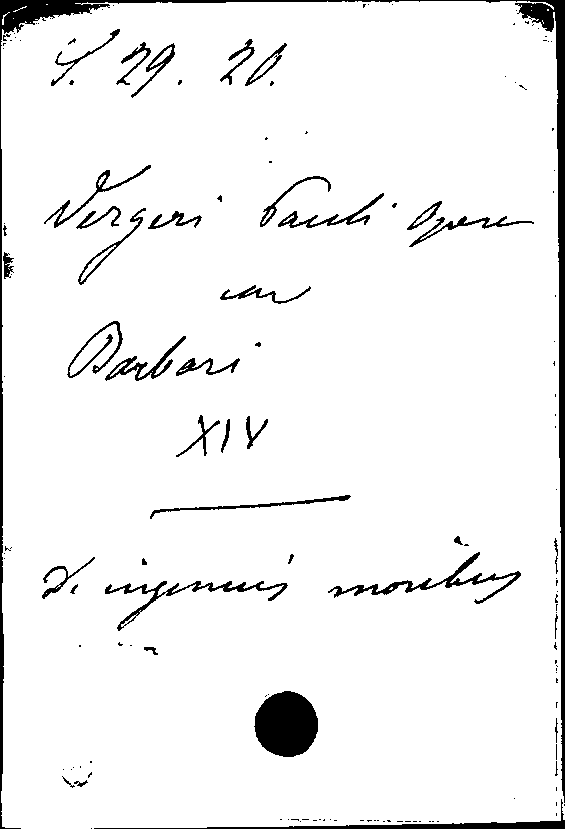 S. 29. 20.
Vergeri Pauli opere
Barbari
XIV
De ingenuis moribus